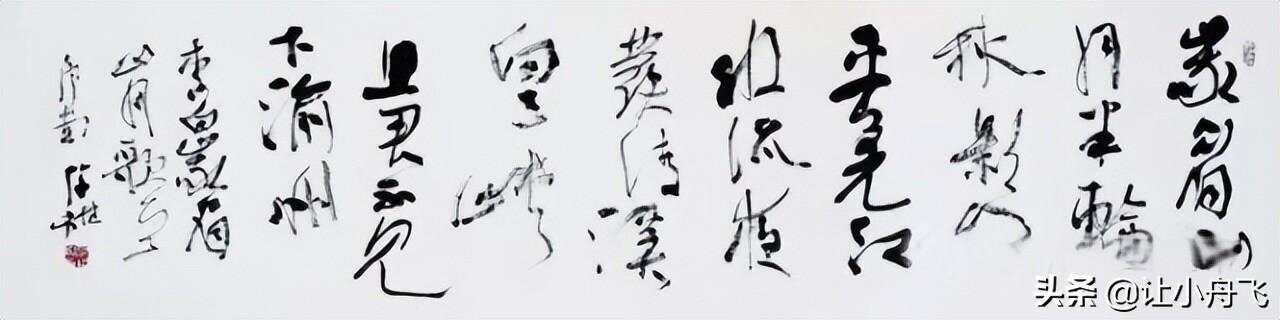 峩眉山
月半輪
秋影入
平羌江
水流夜
發清溪
向三峽
思君不見
下渝州
李白峩眉
山月歌
头条 @让小舟飞